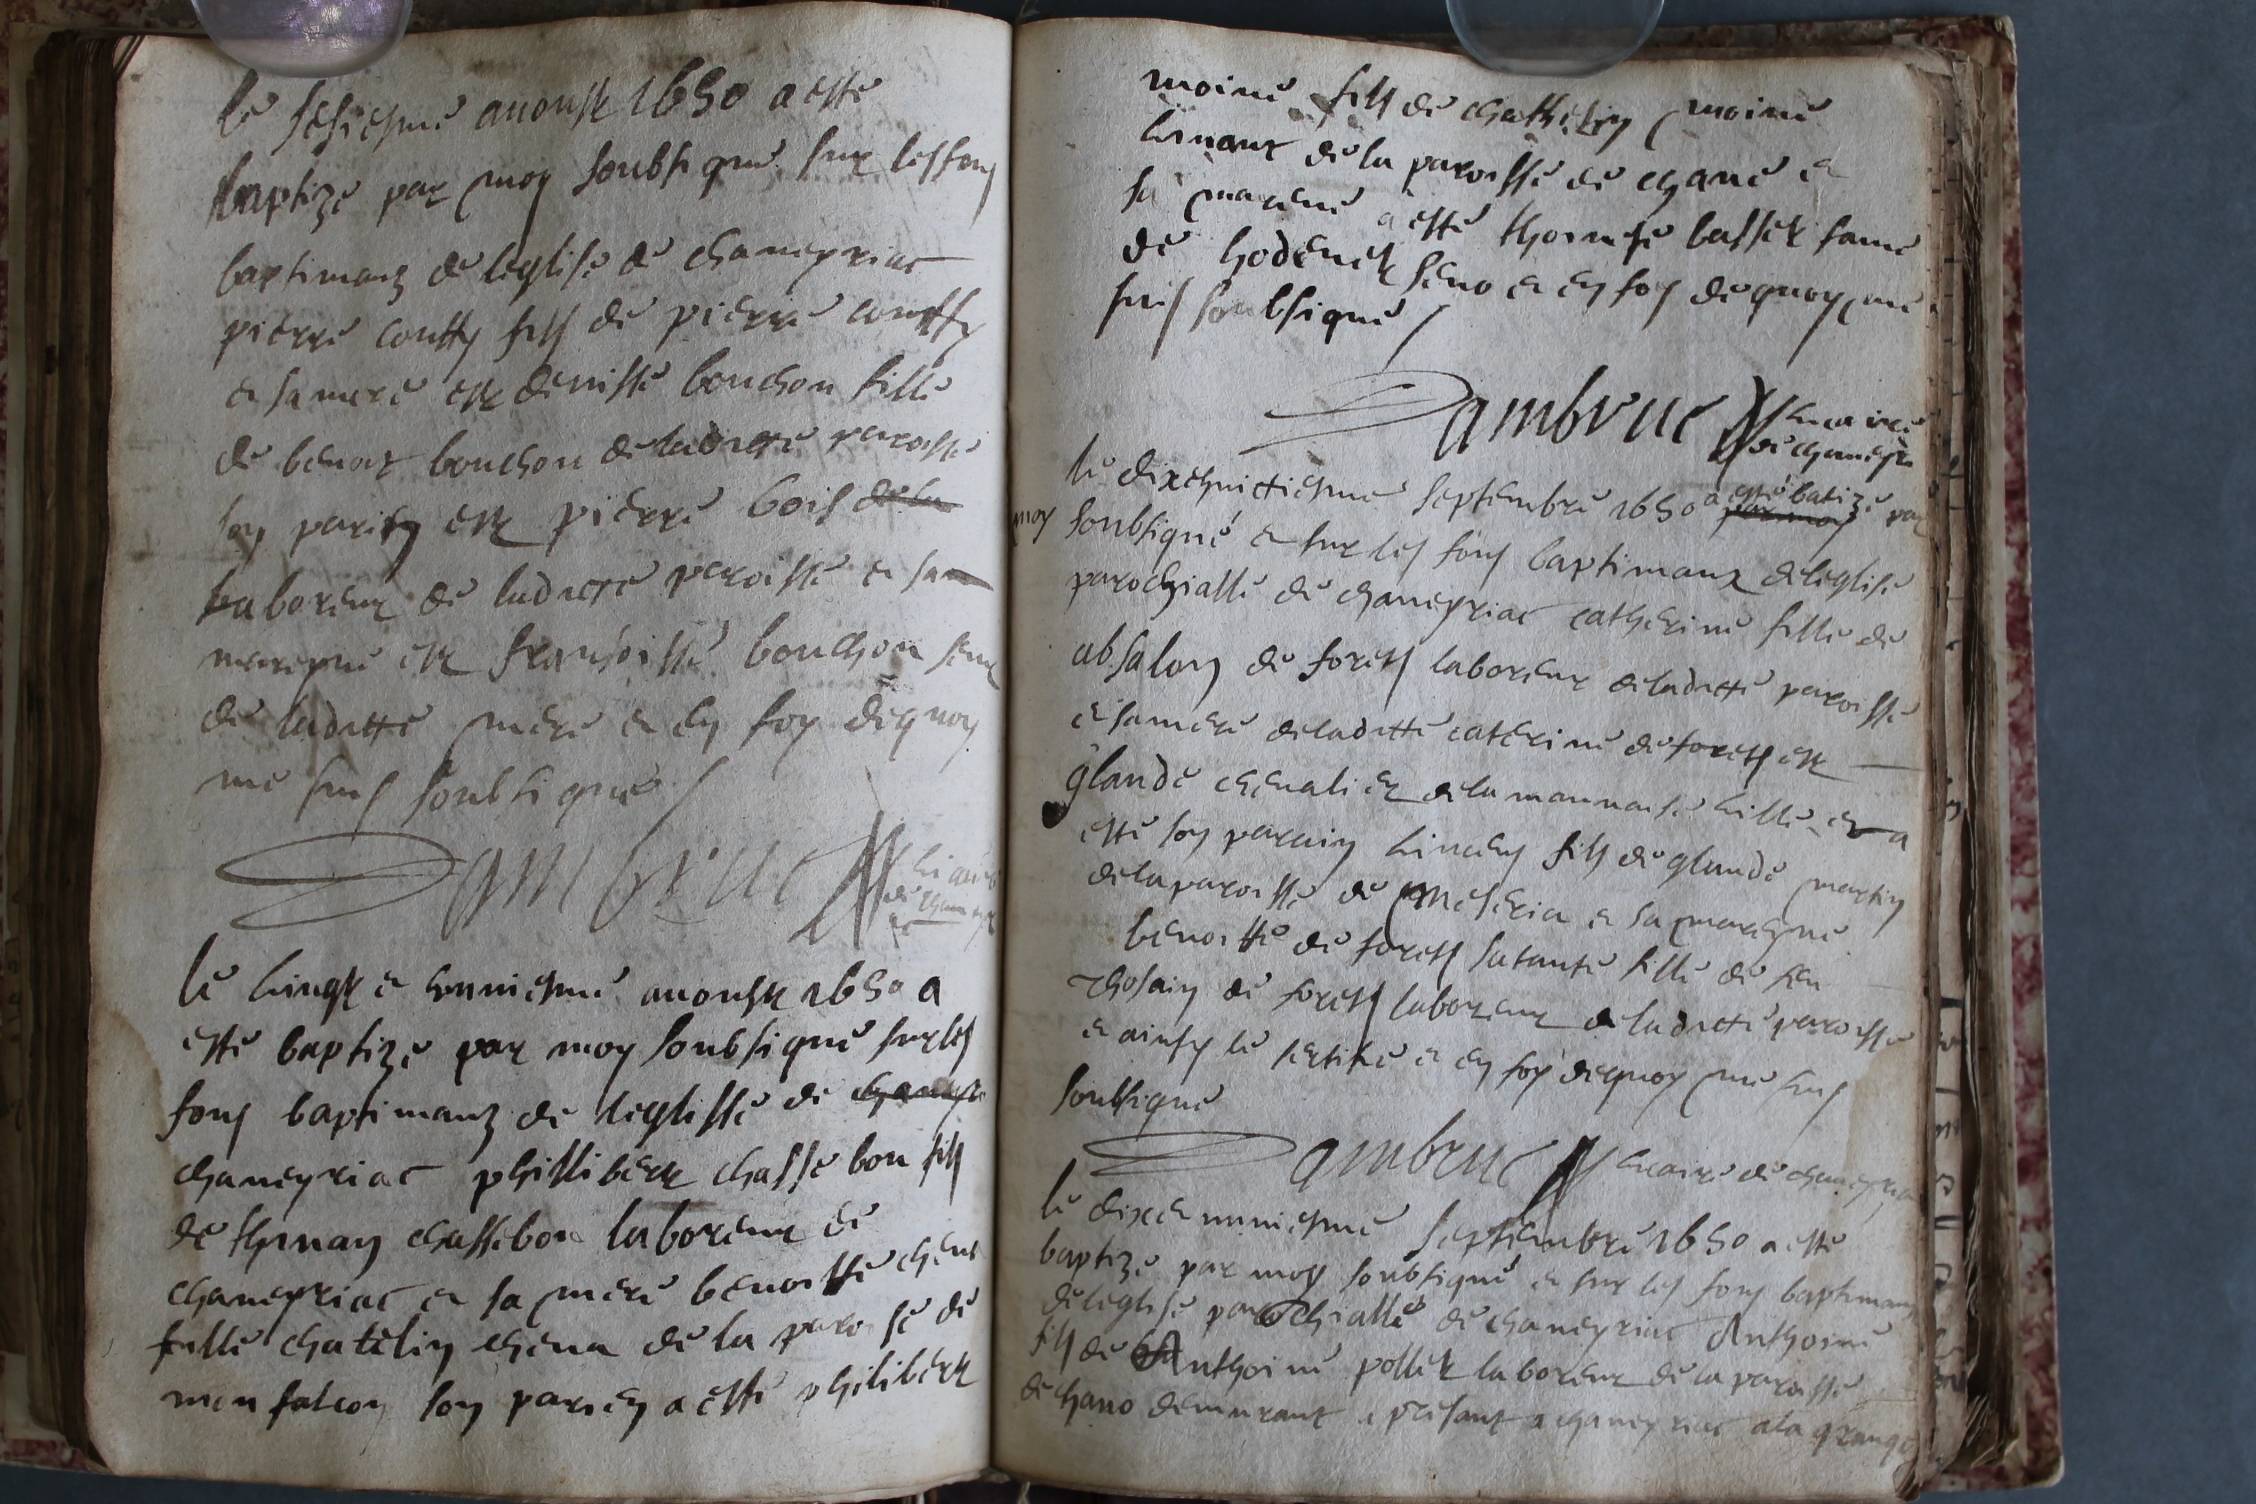 le sesiesme auoust 1650 a este
baptize par moy soubsigne sur les fons
baptimanz de leglise de chaneyriac
pierre coutty fils de pierre coutty
et sa mere est denisse bouchon fille
de benoit bouchon de laditte paroisse
son parisn est pierre bois de la
laboreur de laditte paroisse et sa
marepne est fransoisse bouchon seur
de laditte mere et en foy dequoy
me suis soubsigne
Dambruc vicaire
de chaney
le vingt et unniesme auoust 1650 a
este baptize par moy soubsigne sur les
fons baptimanz de leglisse de chaneyr
chaneyriac phillibert chassebon fils
de chassebon laboreur de
chaneyriac et sa mere benoitte chena
fille chatelin chena de la paroise de
monfalcon son parien a este philibert
moine fils de chathelin moine
de la paroisse de chane et
sa marene a este thomise basset fame
de et en foy dequoy me
suis soubsigne
Dambruc vicaire
de chaneyr
le dixehuictiesme septembre 1650 a este batize par
par moy
moy soubsigne et sur les fons baptimanx de leglise
parochialle de chaneyriac catherine fille de
absalon de forests laboreur de laditte paroisse
et sa mere de laditte caterine de forests est
glaude chevalier de la mauuaise ville et a
este son parain vincens fils de glaude martin
de la paroisse de Meseria et sa marepne
benoitte de forests sa tante fille de feu
de forests laboreur de laditte paroisse
et ainsy le sertifie et en foy dequoy me suis
soubsigne
Dambruc vicaire de chaneyria
le dixeennuiesme septembre 1650 a este
baptize par moy soubsigne et sur les fons baptimanx
de leglise parochialle de chaneyriac Anthoine
fils de Anthoine pollet laboreur de la paroisse
de chano demurant a presant a chaneyriac a la grange